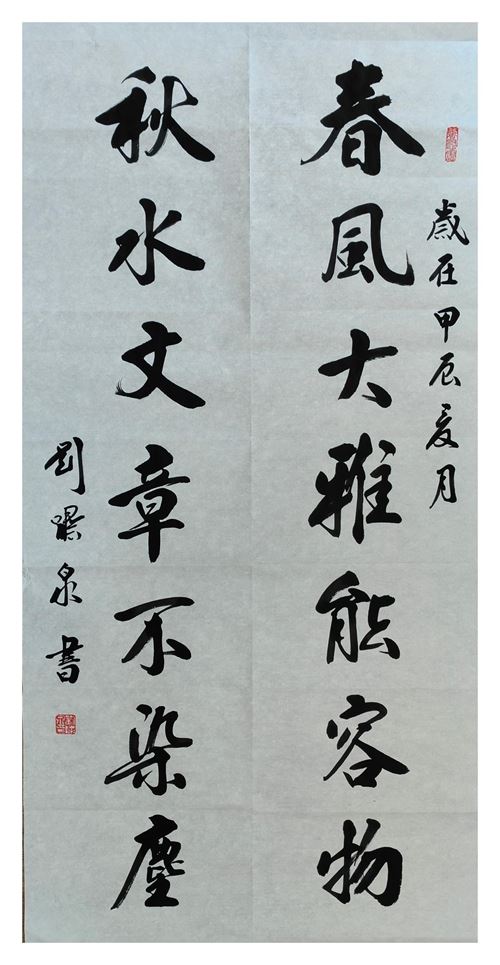 歲在甲辰夏月
春風大雅能容物
秋水文章不染塵
劉
泉書